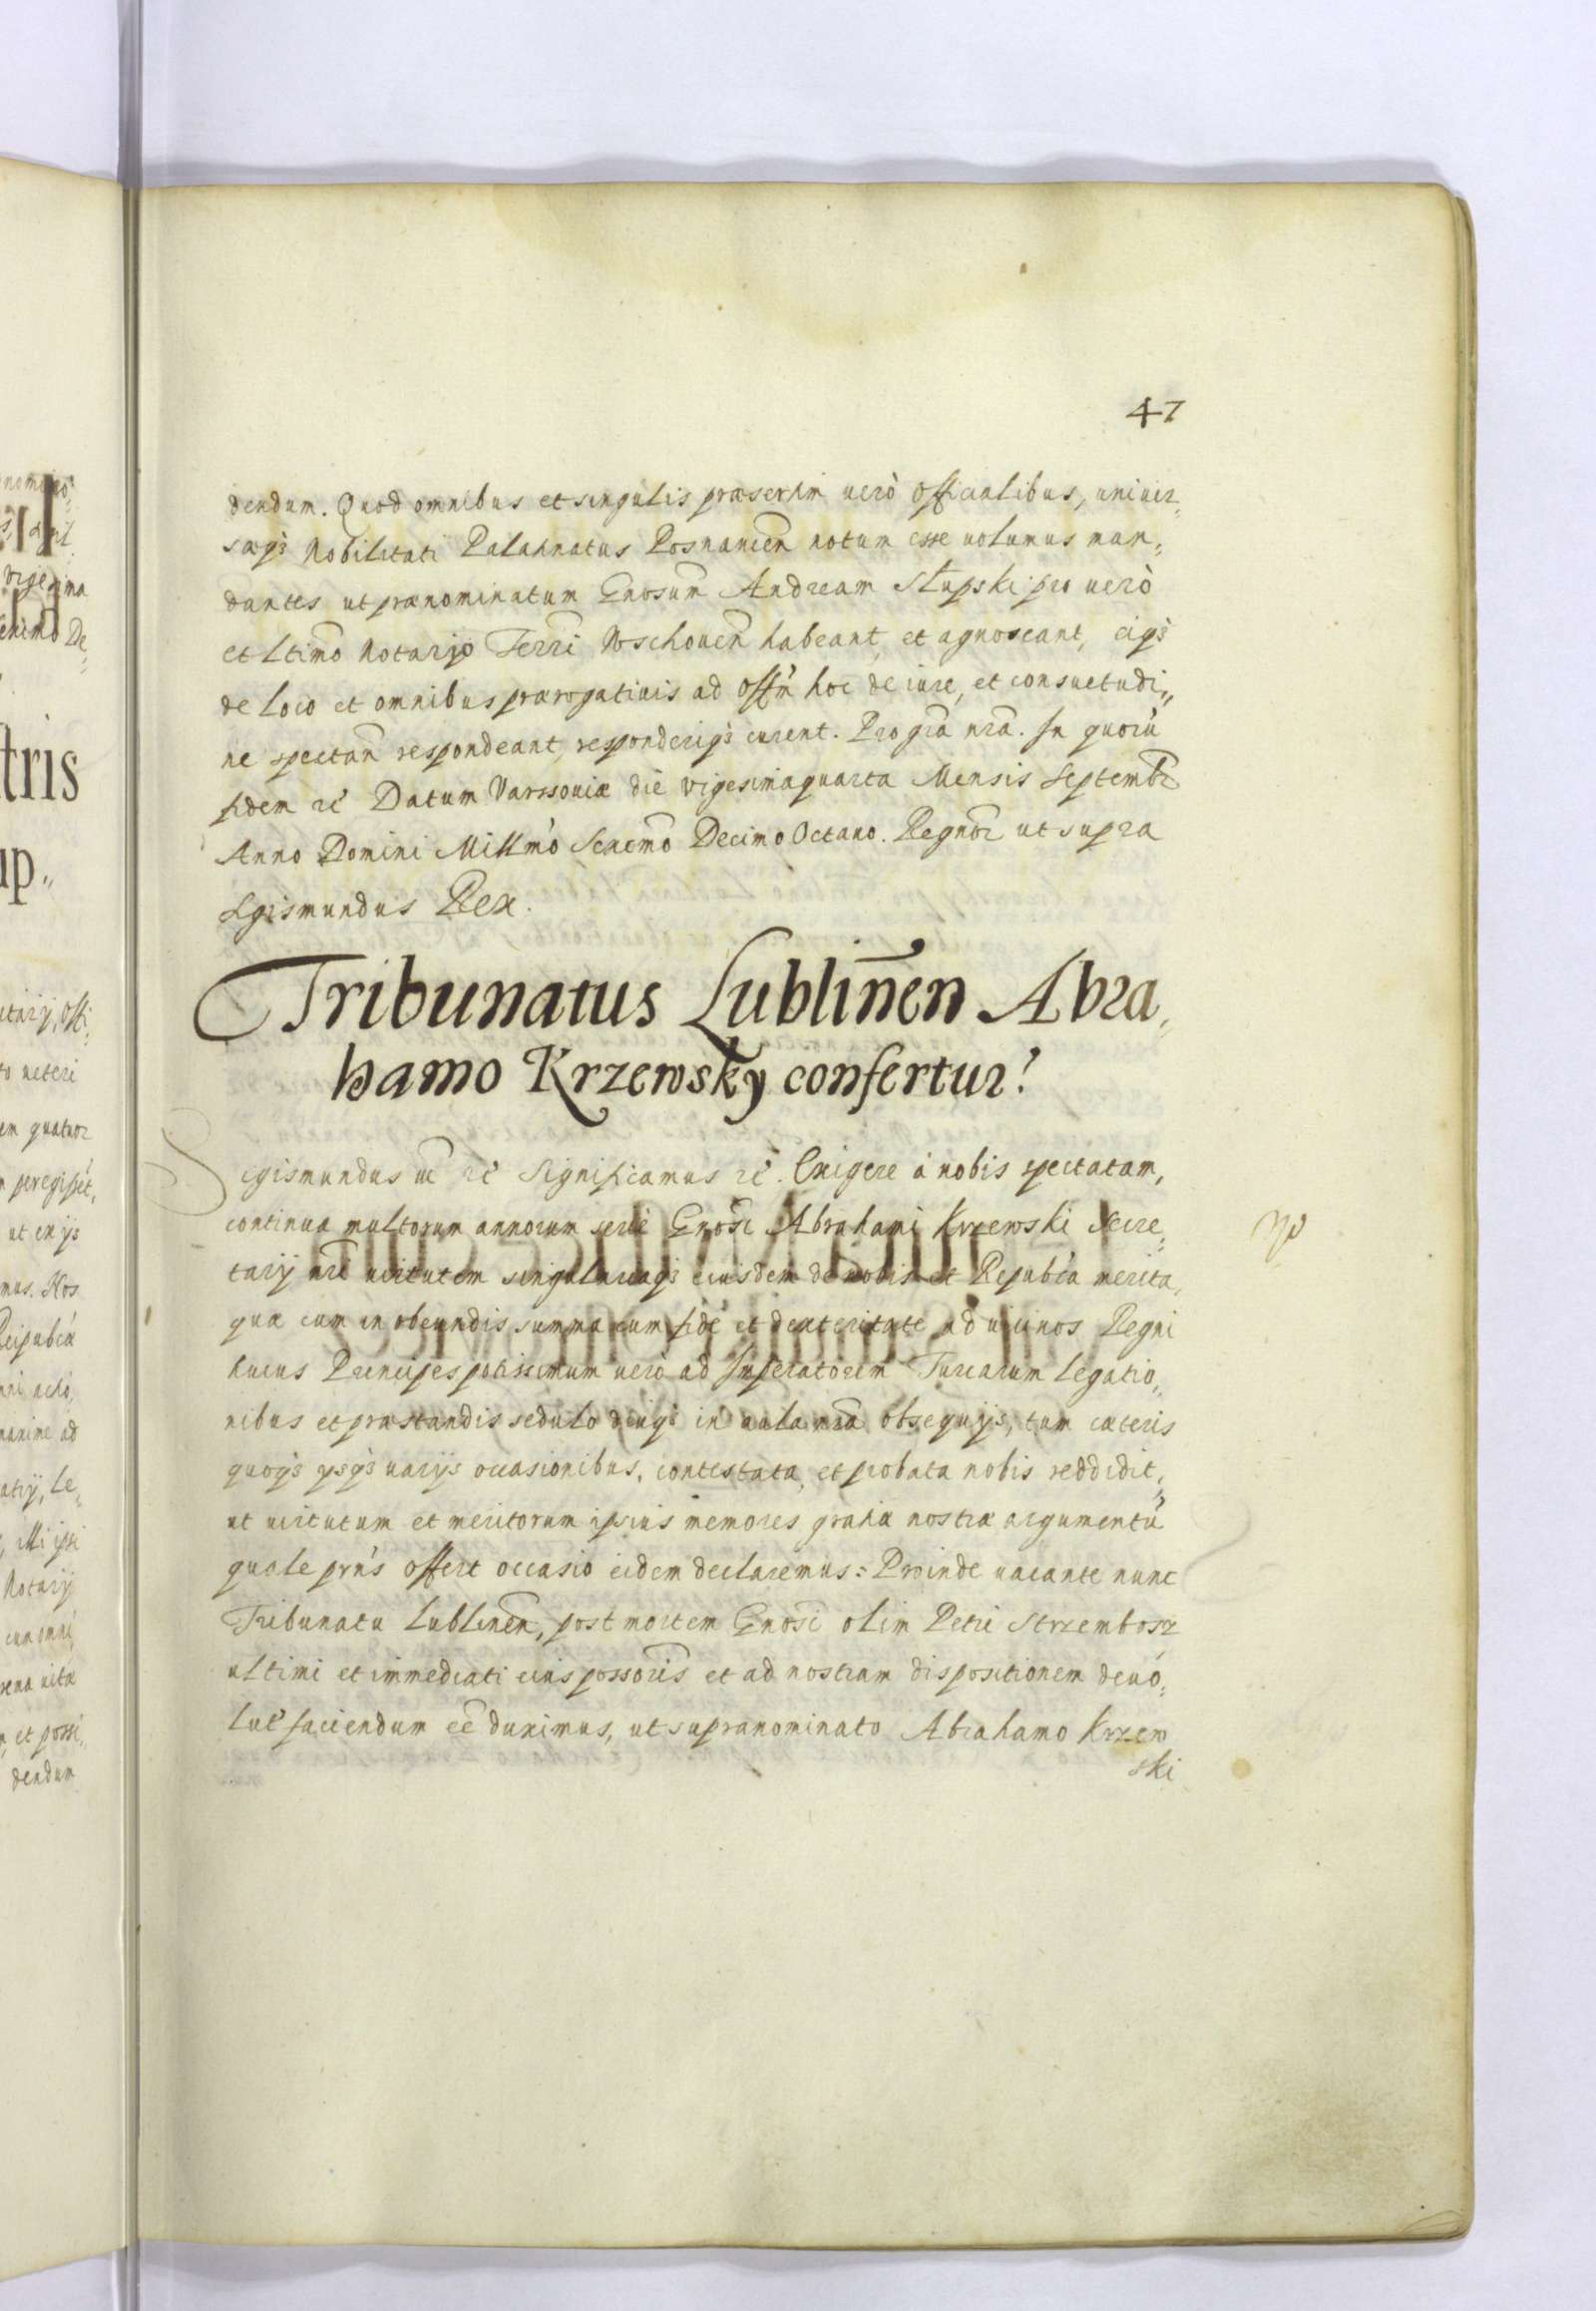 47
dendum. Quod omnibus et singulis præsertim uerò Officialibus, uniuer„
sæq; Nobilitati Palatinatus Posnanien̄ notum esse uolumus man„
dantes ut prænominatum Gnosum̄ Andream Słupski pro uerò
et Ltimo͂ Notario Terri͂ Wschouen̄ habeant, et agnoscant, eiq;
de loco et omnibus prærogatiuis ad Offm̄ hoc de iure, et consuetudi„
ne spectan̄ respondeant, responderiq; curent. Pro gra͂ nra͂. In quorú
fidem rē Datum Varssouiæ die vigesimaquarta Mensis Septembr̄
Anno Domini Millmó Sexcmo͂ Decimo Octauo. Regnor̄ ut supra
Sigismundus Rex.
Tribunatus Lublinēn Abra„
hamo Krzewsky confertur.
Sigismundus uc͂ rē Significamus rē. Exigere à nobis spectatam,
continua multorum annorum serie Gnosi͂ Abrahami Krzewski Secre„
tarij nri͂ uirtutem singulariaq; eiusdem de nobis et Repub͂ca merita,
quæ cum in obeundis summa cum fide et dexteritate ad uicinos Regni
huius Principes potissimum uerò ad Imperatorem Turcarum legatio„
nibus et præstandis sedulo diuq; in aula nra͂ obsequijs, tum cæteris
quoq; ysq; uarijs occasionibus, contestata, et probata nobis reddidit„
ut uirtutum et meritorum ipsius memores gratiæ nostræ argumentú
quale prńs offert occasio eidem declaremus: Proinde uacante nunc
Tribunatu Lublinen̄, post mortem Gnosi͂ olim Petri Strzembosz
ultimi et immediati eius possoris͂ et ad nostram dispositionem deuo„
luē faciendum eē duximus, ut supranominato Abrahamo Krzew
ski